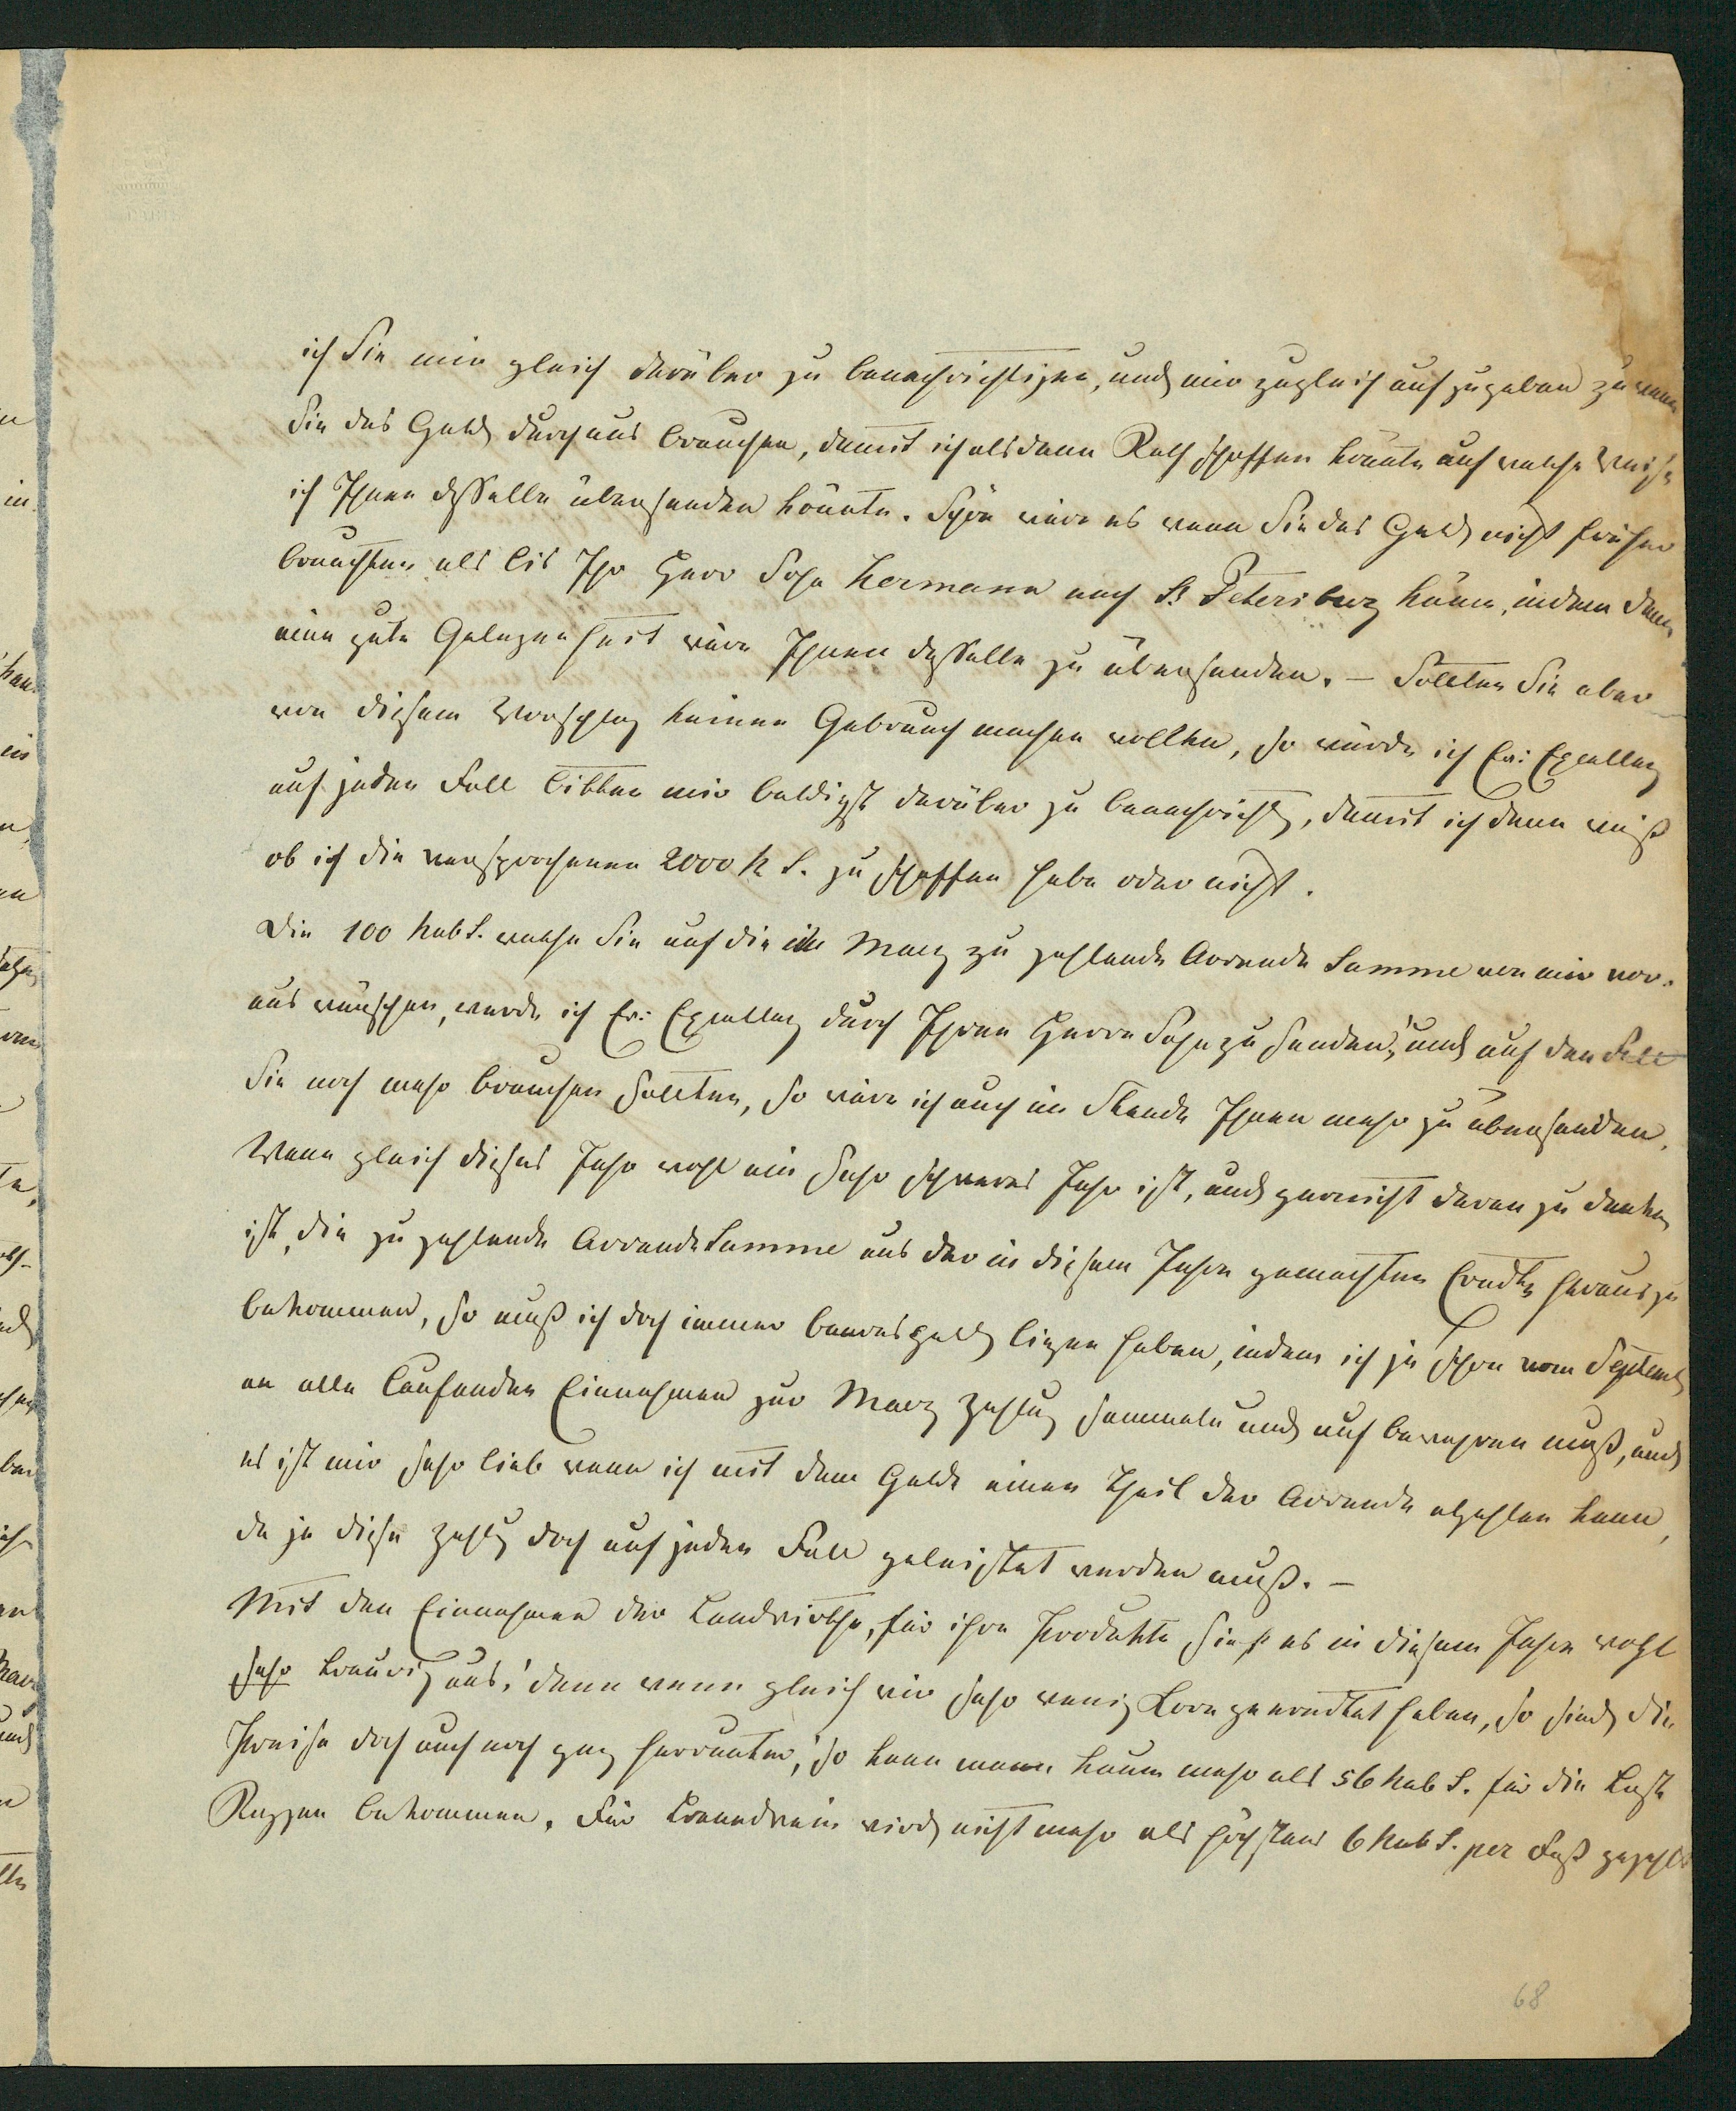 ich Sie mir gleich darüber zu benachrichtigen, und mir zugleich aufzugeben zu wann
Sie das Geld durchaus brauchen, damit ich alsdann Rath schaffen könnte auf welche Weise
ich Ihnen dasselbe übersenden könnte. Schön wäre es wenn Sie das Geld nicht früher
brauchten als bis Ihr Herr Sohn Hermann nach St Petersburg käme, indem dann
eine gute Gelegenheit wäre Ihnen dasselbe zu übersenden. – Sollten Sie aber
von diesem Vorschlag keinen Gebrauch machen wollen, so würde ich Ew: Excellenz
auf jeden Fall bitten mir baldigst darüber zu benachricht, damit ich dann weiß
ob ich die versprochenen 2000 R S. zu schaffen habe oder nicht.
Die 100 Rub S. welche Sie auf die im Maerz zu zahlende Arrende Summe von mir vor-
aus wünschen, werde ich Ew: Excellenz durch Ihren Herrn Sohn zu senden, und auf den Fall
Sie noch mehr brauchen sollten, so wäre ich auch im Stande Ihnen mehr zu übersenden.
Wenn gleich dieses Jahr wohl ein sehr schweres Jahr ist, und garnicht daran zu denken
ist, die zu zahlende Arrende Summe aus der in diesem Jahre gemachten Erndte heraus zu
bekommen, so muß ich doch immer baares Geld liegen haben, indem ich ja schon vom Septemb
an alle laufenden Einnahmen zur Maerz Zahlung sammeln und auf bewahren muß, und
es ist mir sehr lieb wenn ich mit dem Gelde einen Theil der Arrende abzahlen kann,
da ja diese Zahlg doch auf jeden Fall geleistet werden muß. –
Mit den Einnahmen der Landwirthe, für ihre Produkte sieht es in diesem Jahre wohl
sehr traurig aus, denn wenn gleich wir sehr wenig Korn geerndtet haben, so sind die
Preise doch auch noch ganz herunter, so kann man kaum mehr als 56 Rub S. für die Last
Roggen bekommen. Für Brandwein wird nicht mehr als höchstens 6 Rub S. per Faß gezahlt
68